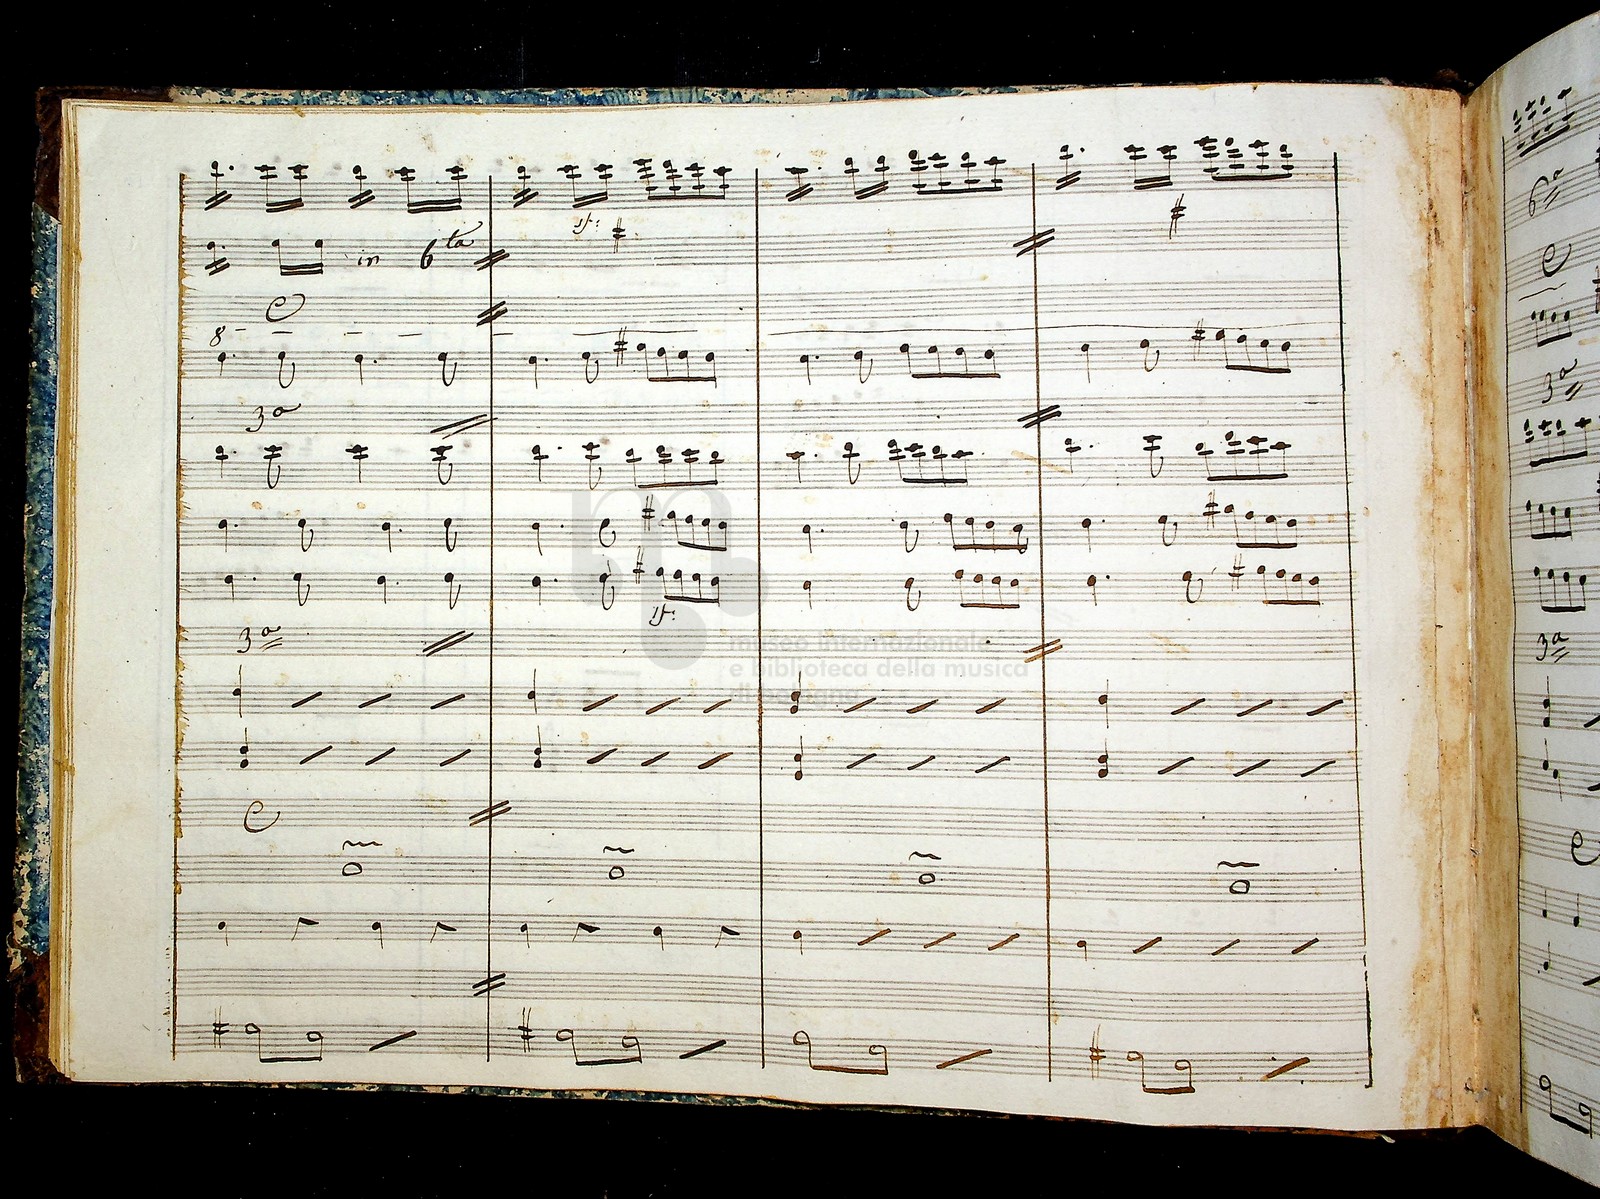 sf:
in 6ta
8
3a
sf:
3a
museo internazionale
e biblioteca della musica
di bologna
6a
3a
3a